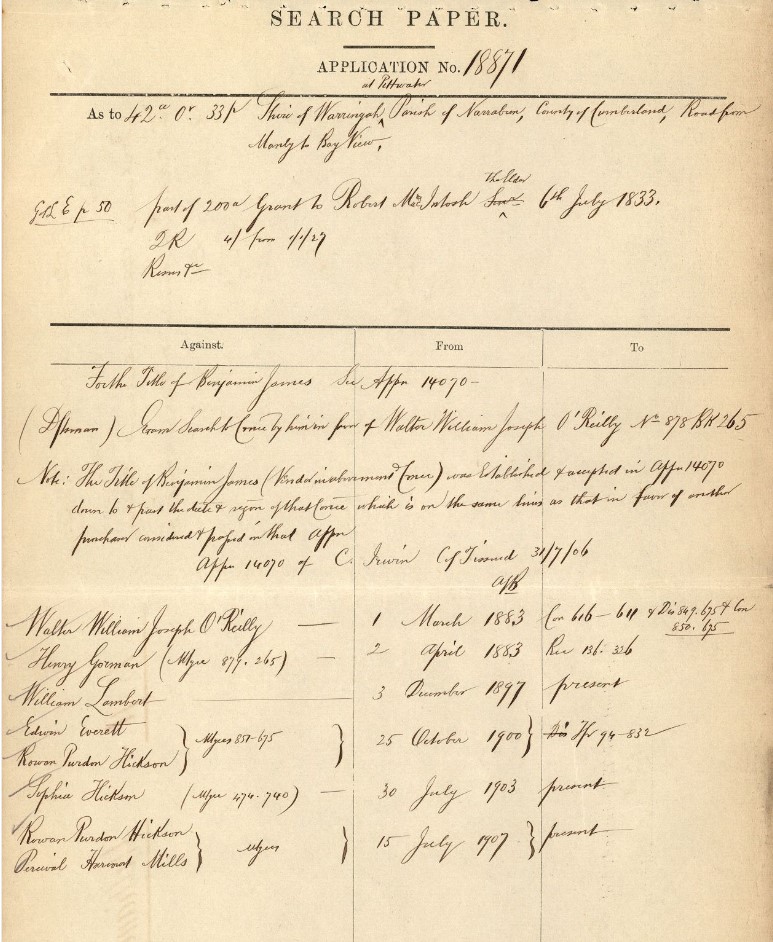 SEARCH PAPER.
APPLICATION No. 18871
at Pittwater
As to 42a. 0r. 33p Shire of Warringah, Parish of Narrabeen, County of Cumberland, Road from
Manly to Bay View.
the Elder
G.R.E p 50 part of 200a Grant to Robert McIntosh 6th July 1833.
QR 4/ from 1/1/27
Resns &c
Against. From To
For the Title of Benjamin James See Appn 14070 -
from Search to Convce by him in favr of Walter William Joseph O'Reilly No 878 BK 265
Note: The Title of Benjamin James (Vendor in abovement'd Convce) was Established & accepted in Appn 14070
down to & past the date & regon of that Convce which is on the same lines as that in favor of another
purchaser considered & passed in that Appn
Appn 14070 of C. Irwin C of T issued 31/7/06
Walter William Joseph O'Reilly — 1 March 1883 Con 616 - 611 & Dis 849. 675 & Con
850. 675
Henry Gorman (Mgee 879. 265) — 2 April 1883 Rec 136. 326
William Lambert 3 December 1897 present
Edwin Everett
Mgees 851-675 25 October 1900 Dis Tfr 94-832
Rowan Purdon Hickson
Sophia Hickson (Mgee 474. 740) — 30 July 1903 present
Rowan Purdon Hickson
Mgees 15 July 1907 present
Percival Harcourt Mills